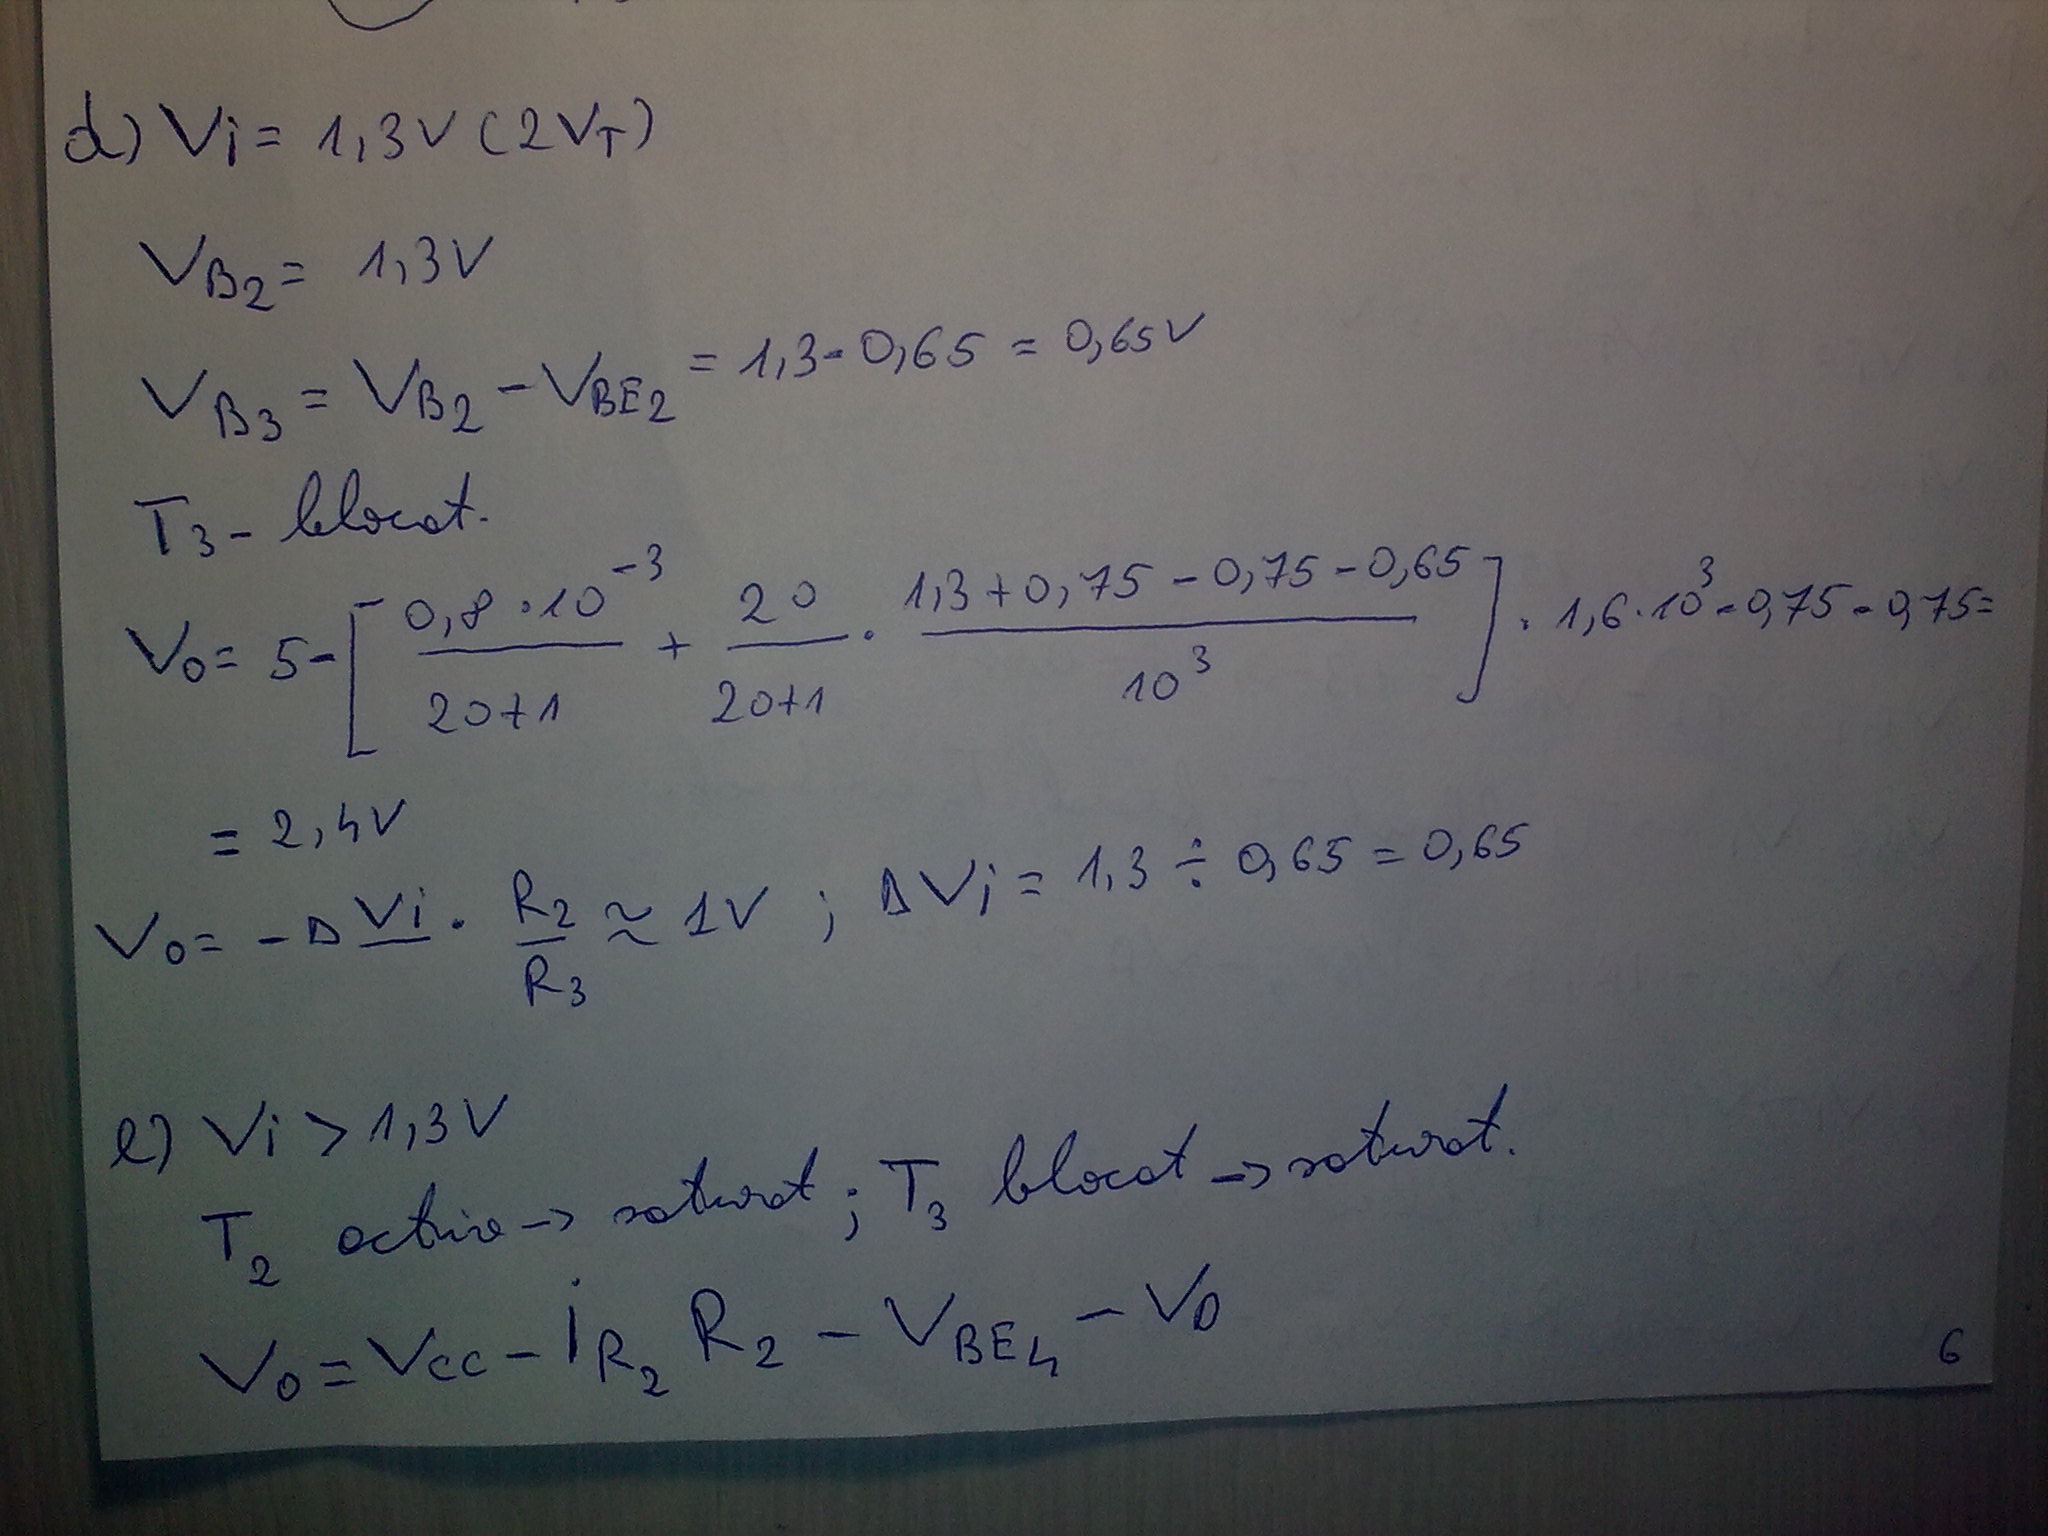 d) Vi = 1,3V (2VT)
VB2 = 1,3V
VB3 = VB2 - VBE2 = 1,3 - 0,65 = 0,65V
T3 - blocat.
V0 = 5 - [ 0,8·10^-3 / 20+1 + 20 / 20+1 · 1,3 + 0,75 - 0,75 - 0,65 / 10^3 ] · 1,6·10^3 - 0,75 - 0,75 =
= 2,4V
V0 = - Δ Vi · R2 / R3 ≈ 1V ; ΔVi = 1,3 ÷ 0,65 = 0,65
e) Vi > 1,3V
T2 activ -> saturat ; T3 blocat -> saturat.
V0 = VCC - iR2 R2 - VBE4 - VD
6